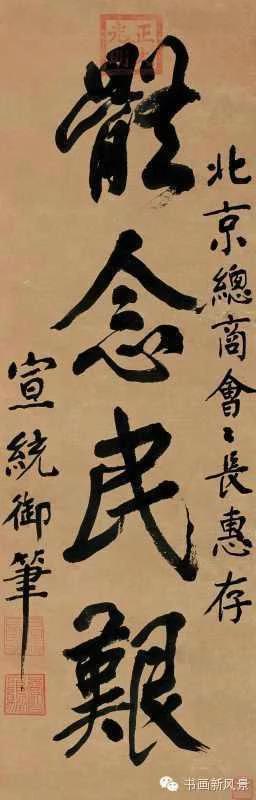 北京總商會〻長惠存
體念民艱
宣統御筆
书画新风景